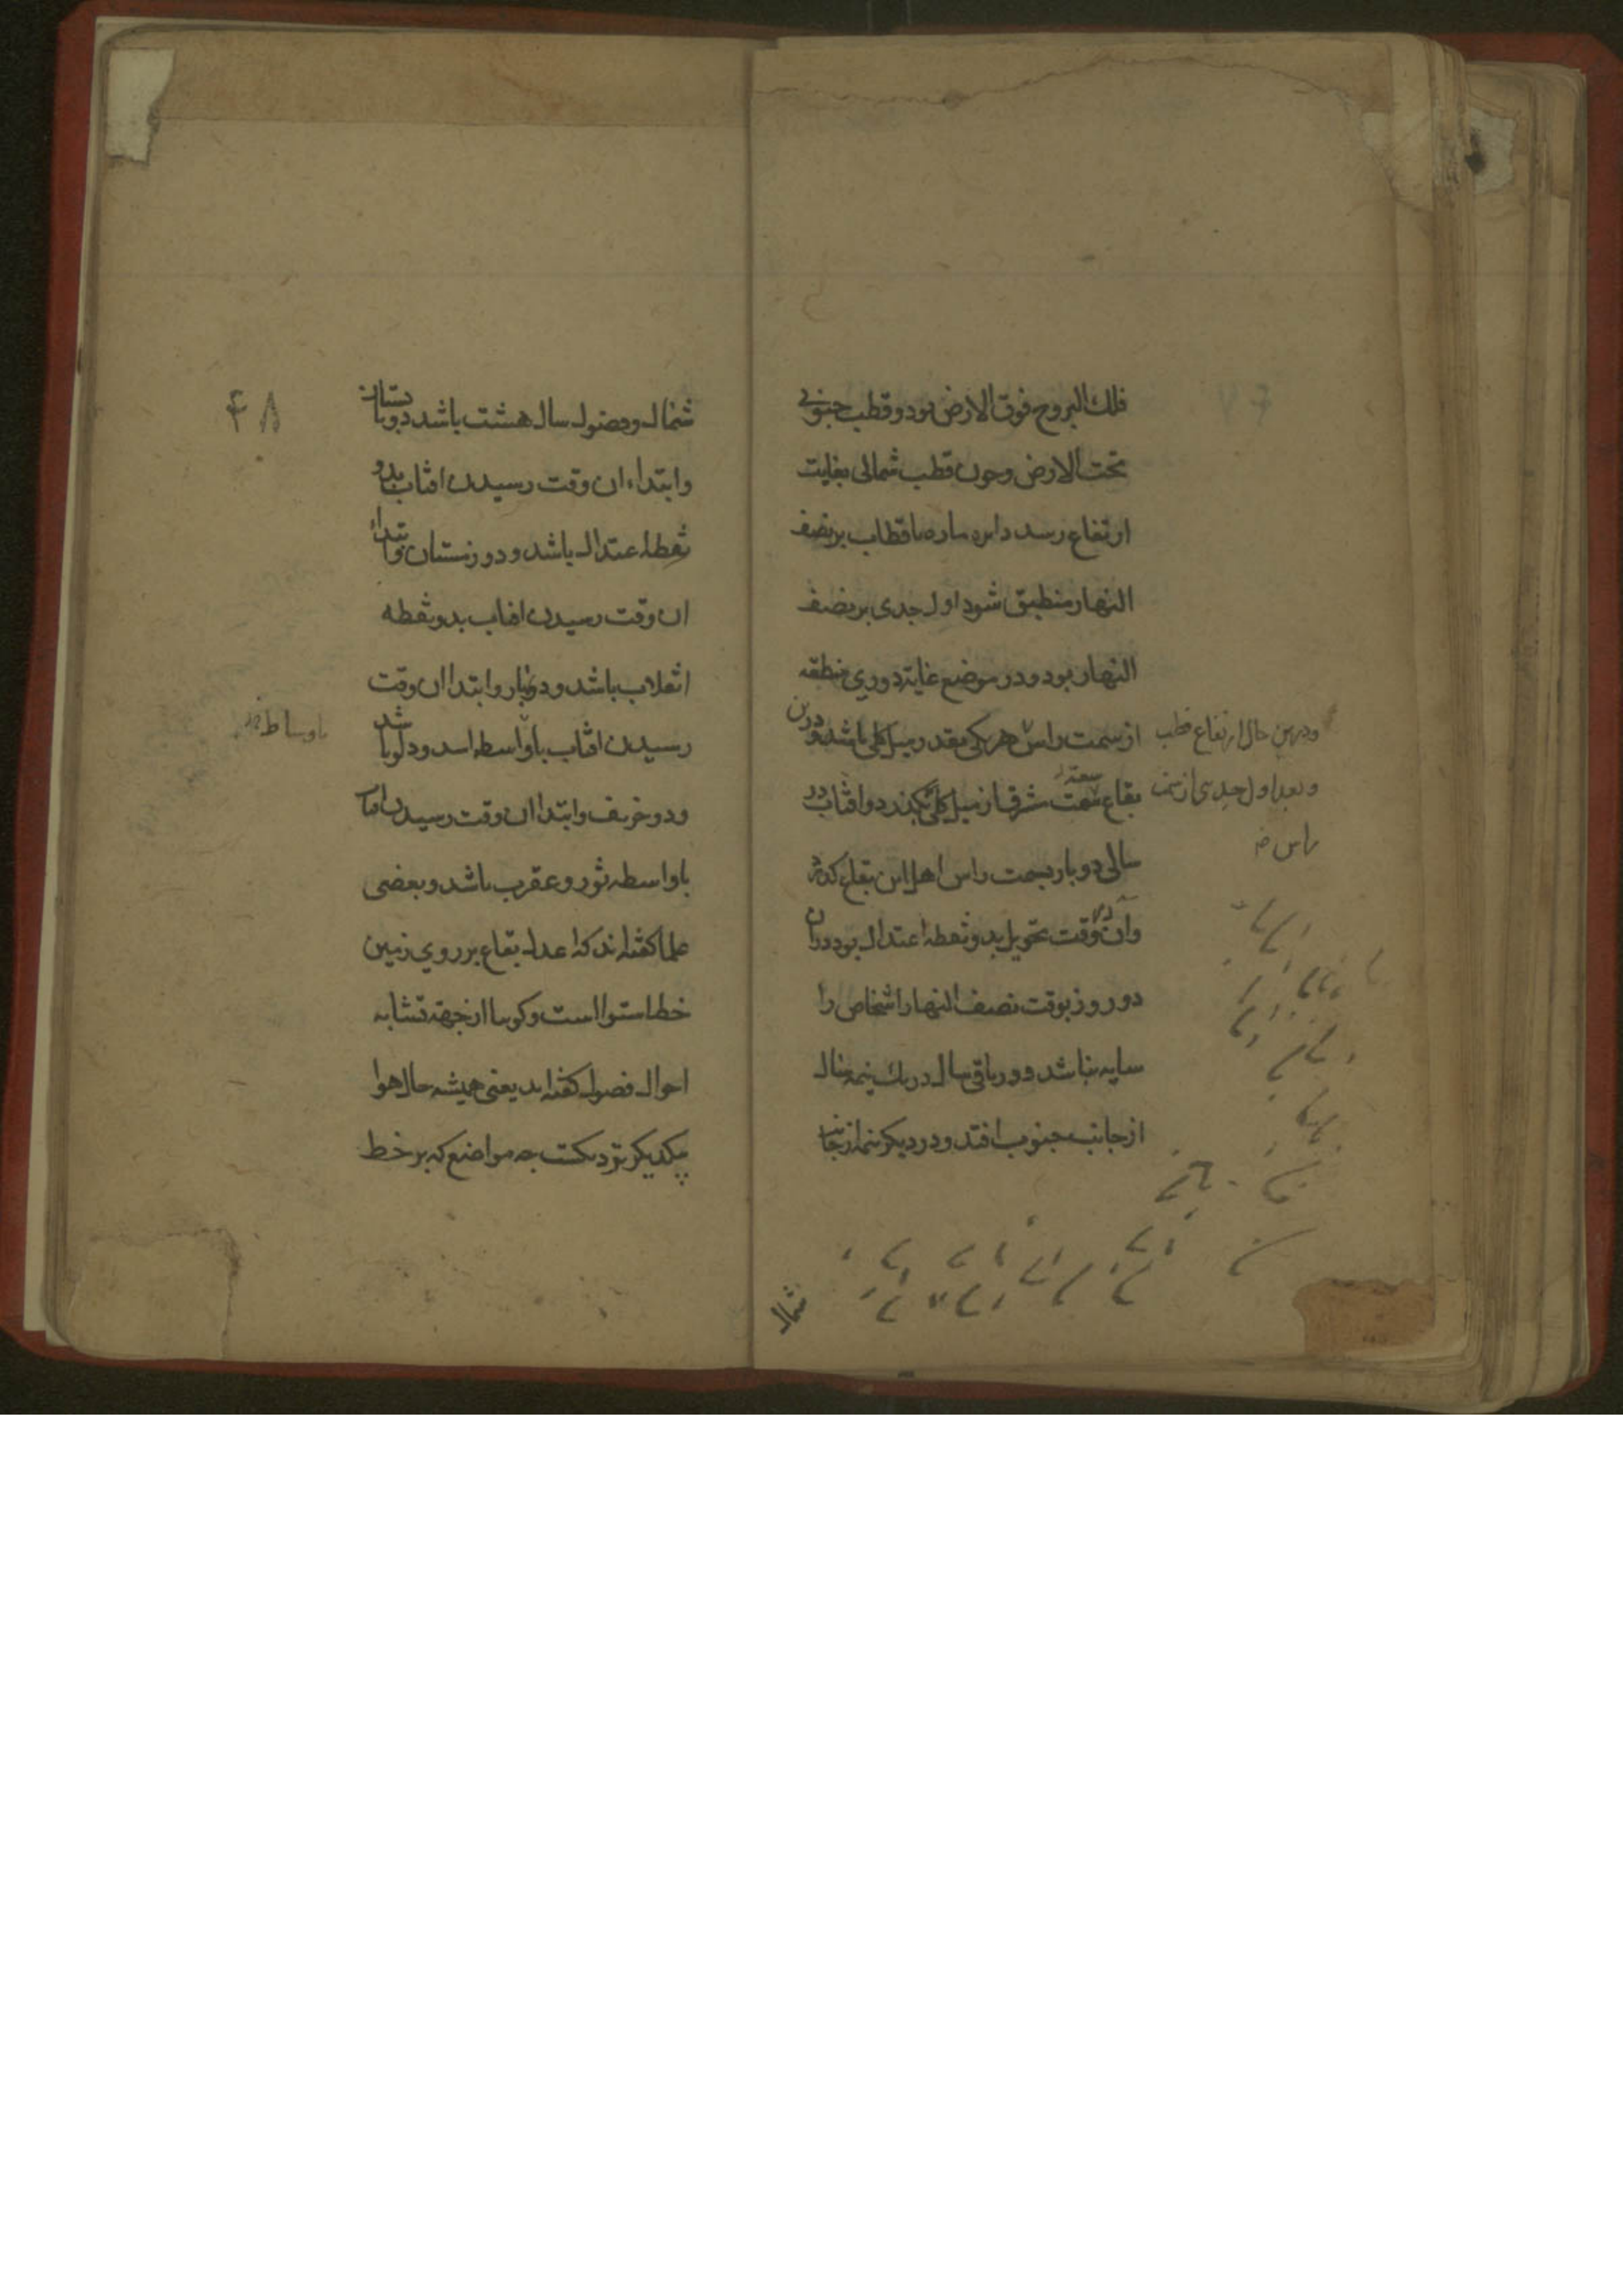 فلك البروج فوق الارض بود و قطب جنوبی
تحت الارض و چون قطب شمالی بغایت
ارتفاع رسد دایره ماره باقطاب بر نصف
النهار منطبق شود اول جدی بر نصف
النهار بود و در موضع غایة دوری منطقه
از سمت راس هر یکی بقدر میل کلی باشد و درین
بقاع سعت مشرق از میل کلی نگذرد و افتاب در
سالی دو بار بسمت راس اهل این بقاع کذرد
وان در وقت تحویل بدو نقطه اعتدال بود و دران
دو روز بوقت نصف النهار اشخاص را
سایه نباشد و در باقی سال در یك نیمه سال
از جانب جنوب افتد و در دیکر نیمه از جانب
ودرین حال ارتفاع قطب
وبعد اول جدی از سمت
راس
شمال
۴۸
شمال و فصول سال هشت باشد دو تابستان
وابتداء ان وقت رسیدن افتاب بدو
نقطه اعتدال باشد و دو زمستان وابتداء
ان وقت رسیدن افتاب بدو نقطه
انقلاب باشد و دو بهار وابتدا ان وقت
رسیدن افتاب باواسطه اسد و دلو باشد
ودو خریف وابتدا ان وقت رسیدن افتاب
باواسطه ثور و عقرب باشد وبعضی
علما کفته اند که اعدل بقاع بر روی زمین
خط استوا است وکویا از جهة تشابه
احوال فصول کفته اند یعنی همیشه حال هوا
بیکدیکر نزدیکست چه مواضع که بر خط
باوساط